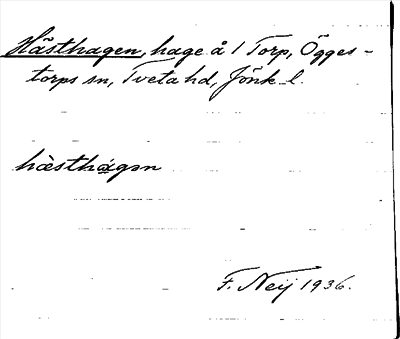 Hästhagen, hage å 1 Torp, Ögges-
torps sn, Tveta hd, Jönk. l.
hästhágən
F. Neij 1936.